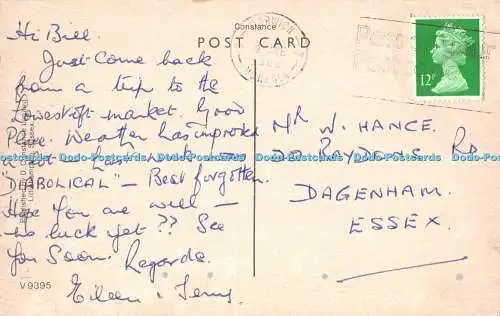 Constance
POST CARD
Hi Bill.
Just come back
from a trip to the
Lowestoft market. Good
Weather has improved
a lot, last week
DIABOLICAL" — Best forgotten.
Hope you are well —
no luck yet?? See
you soon. Regards.
Eileen
V9395
12P
MR W. HANCE.
RD
DAGENHAM.
ESSEX.
Dodo-Postcards Dodo-Postcards Dodo-Postcards Dodo-Postcards